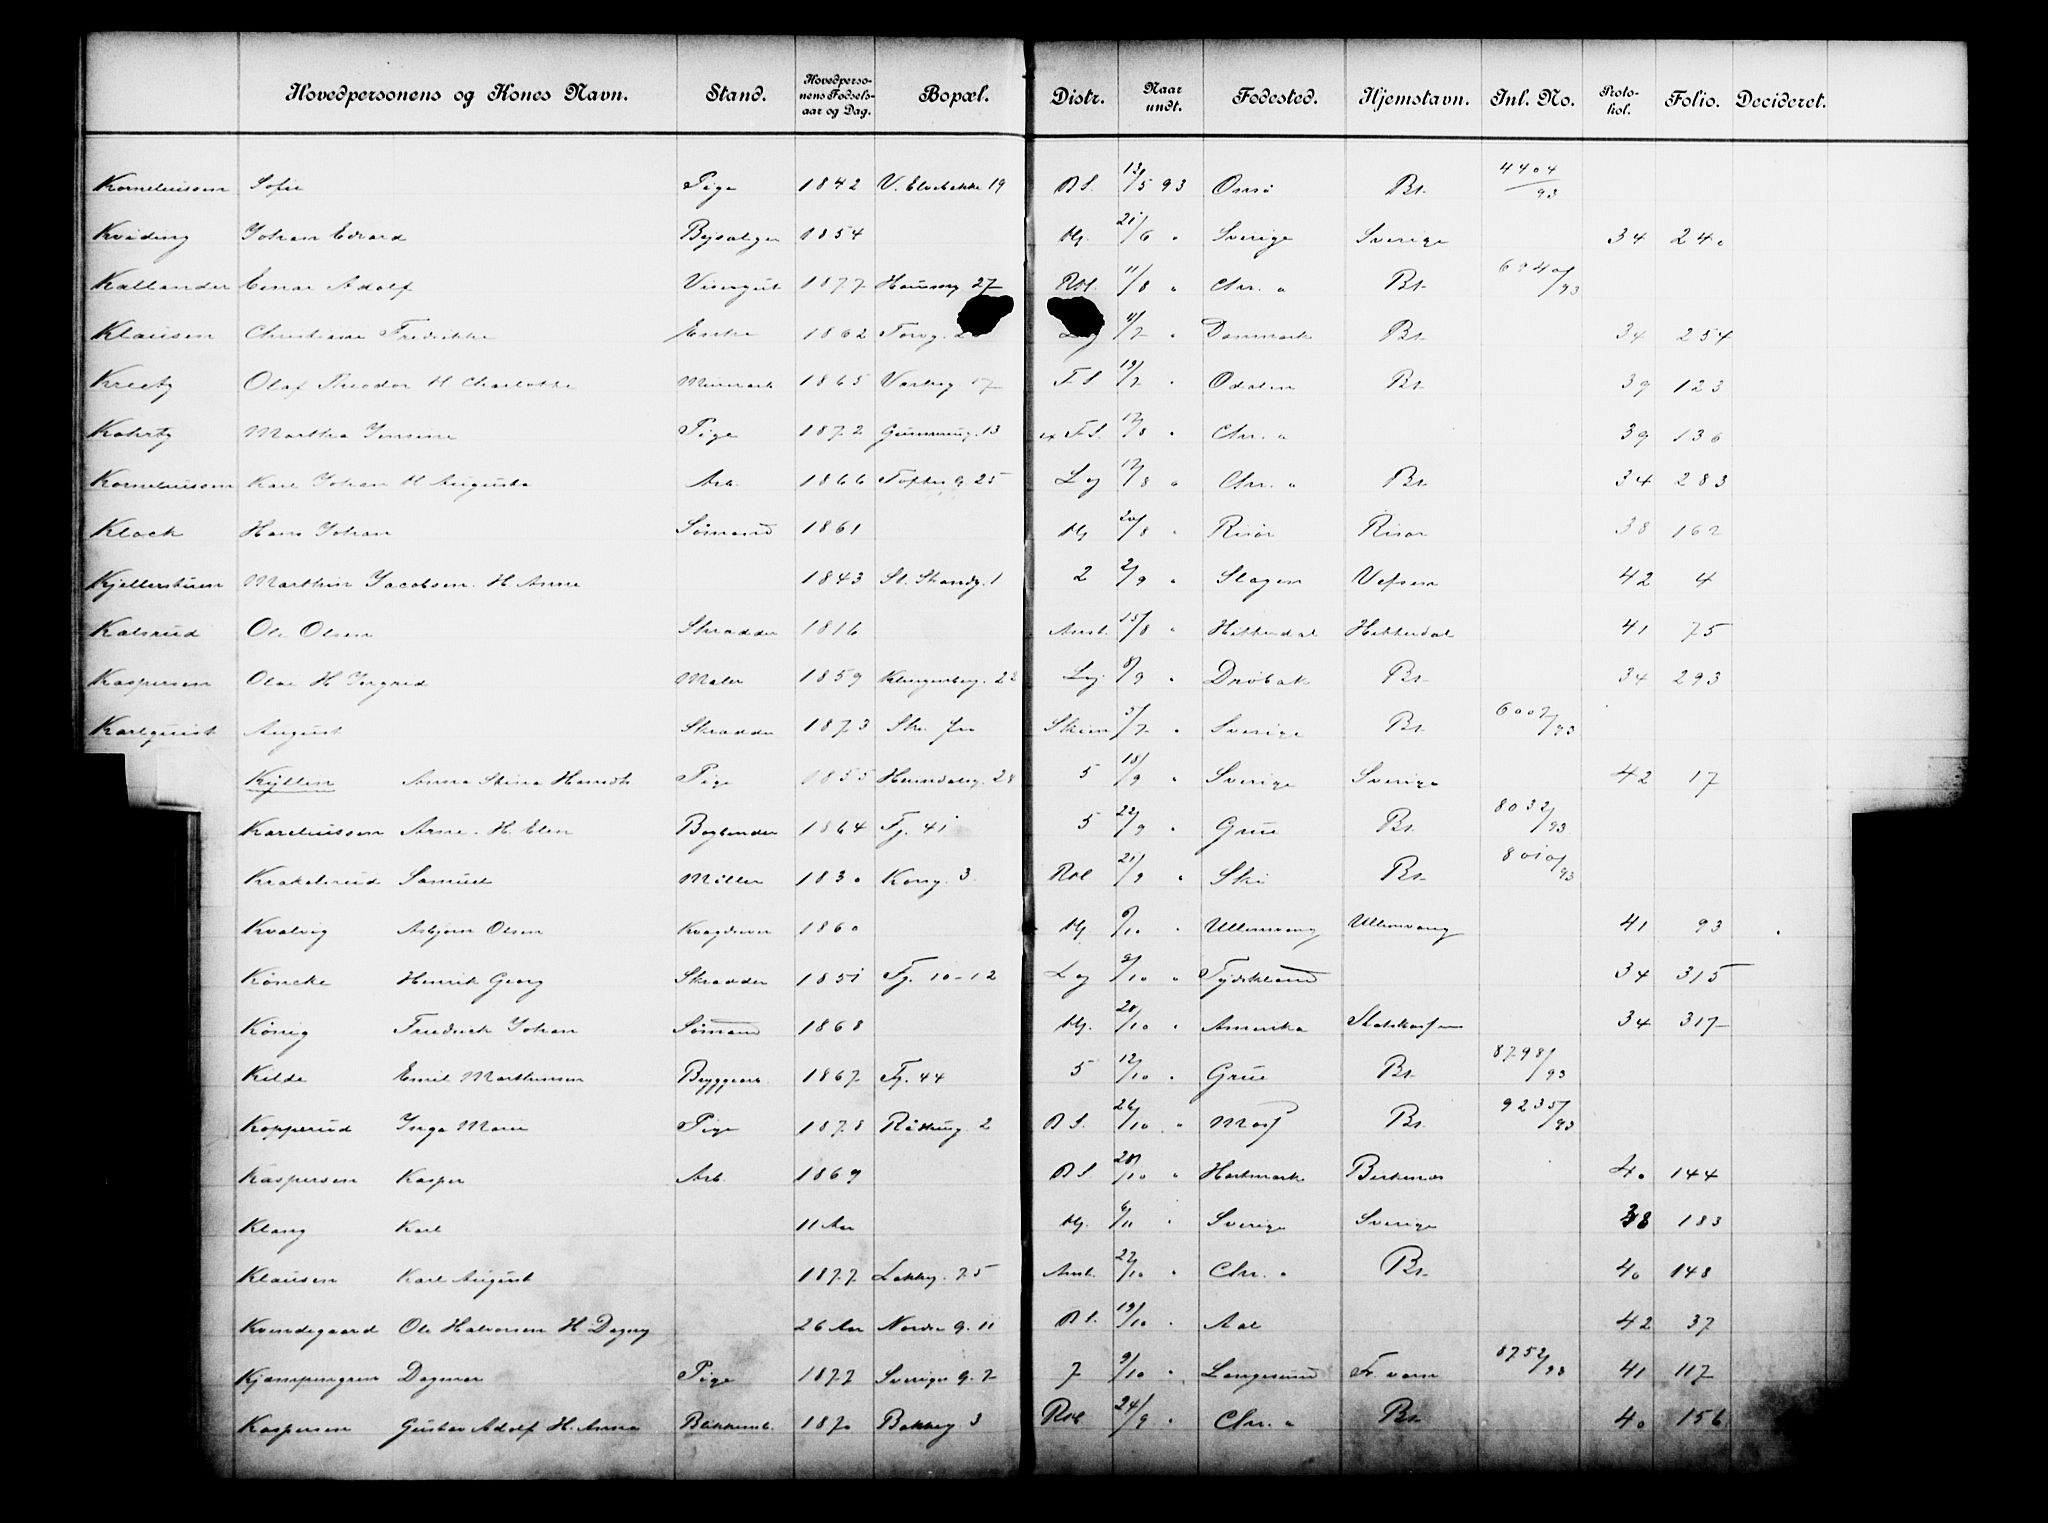 Hovedpersonens og Kones Navn. Stand. Hovedpersonens Fødselsaar og Dag. Bopæl. Distr. Naar undt. Fødested. Hjemstavn. Inl. No. Protokol. Folio. Decideret.
Korneliussen Sofie Pige 1842 V. Elvebakke 19 B S. 13/5 93 Onsø Bt. 4404/93
Kviding Johan Edvard 1854 Hj. 21/6 " Sverige Sverige 34 240
Kallander Einar Adolf Visergut 1877 Hausmg 27 Rol. 11/8 " Chr. a Bt. 6940/93
Klausen Christiane Fredrikke Enke 1862 Torvg. /7 " Danmark Bt. 34 254
Kreetz Olaf Theodor H Charlotte Murerarb 1865 17 F. S. 19/7 " Odalen Bt. 39 123
Martha Jensine Pige 1872 13 F S. 17/8 " Chr. a 39 136
Korneliussen Karl Johan H Augusta Arb. 1866 Toftes g. 25 Log 17/8 " Chr. a Bt. 34 283
Klock Hans Johan Sømand 1861 Hj 20/8 " Risør Risør 38 162
Kjellerstuen Marthin Jacobsen. H. Anne 1843 St. Strandg. 1 2 2/9 " Slagen Vefsen 42 4
Kolsrud Ole Olsen Skrædder 1816 Anst. 15/8 " Hitterdal Hitterdal 41 75
Kaspersen Olai H Ingrid Maler 1859 Klingenbg. 22 Log. 8/9 " Drøbak Bt. 34 293
Karlquist August Skrædder 1873 Skien 3/7 " Sverige Bt. 6007/93
Kyllin Anna Stina Pige 1855 Heimdalsg. 28 5 18/9 " Sverige Sverige 42 17
Kareliussen Arne. H. Elen 1864 Fj. 41 5 22/9 " Grue Bt. 8032/93
Krakelsrud Samuel Møller 1830 Kong. 3 Rol 21/9 " Ski Bt. 8010/93
Kvalvig Asbjørn Olsen Kvægdriver 1860 Hj 6/10 " Ullensvang Ullensvang 41 93
Køncke Henrik Georg Skrædder 1851 Fj. 10-12 Log 2/10 " Tydskland 34 315
Kønig Friedrich Johan Sømand 1868 Hj. 28/10 " Amerika Statskassen 34 317
Kilde Emil Marthinsen Bryggearb. 1867 Fj. 44 5 12/10 " Grue Bt. 8798/93
Kopperud Inga Marie Pige 1878 2 B S. 26/10 " Moss Bt. 9235/93
Kaspersen Kasper Arb. 1869 B S. 28/10 " Hartmark Birkenæs 40 144
Klang Karl 11 Aar Hj. 6/11 " Sverige Sverige 38 183
Klausen Karl August 1877 Løkkeg. 75 Anst. 27/10 " Chr. a Bt. 40 148
Kvindegaard Ole Halvorsen H. Dagny 26 Aar Nordre g. 11 B S. 19/10 " Aal 42 37
Kjæmpengren Dagmar Pige 1877 Sveriges g. 7 7 9/10 " Langesund Fr. værn 8752/93 41 117
Kaspersen Gustav Adolf H. Anna Blikkensl. 1870 Bakkeg 3 Rol 24/9 " Chr. a Bt. 40 156